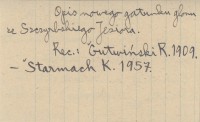 Opis nowego gatunku glonu
ze Szczyrbskiego Jeziora.
Rec.: Gutwiński R. 1909.
– Starmach K. 1957.